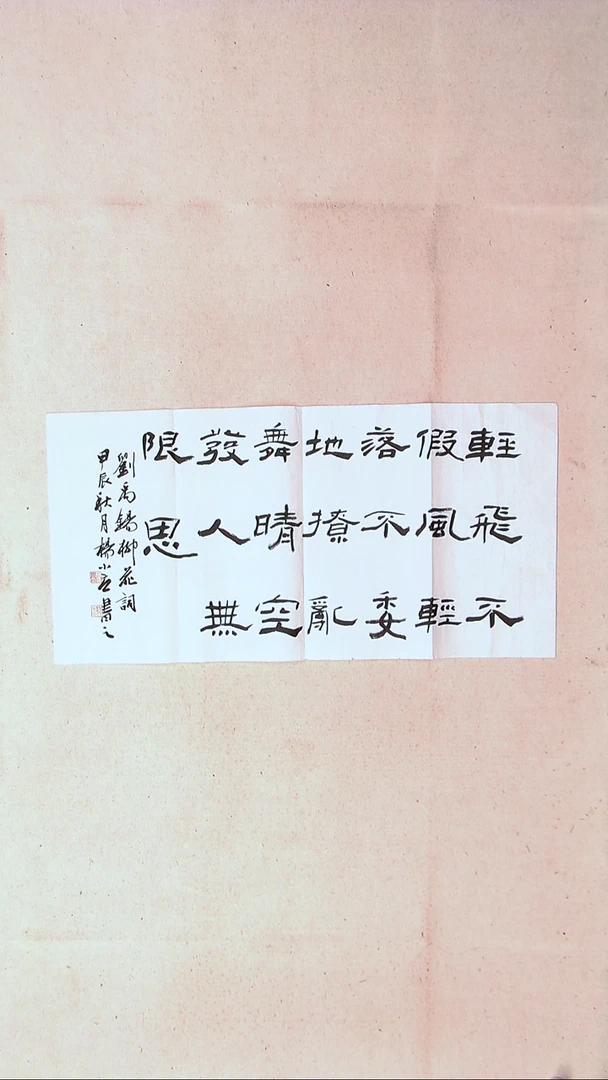 輕飛不
假風輕
落不委
地撩亂
舞晴空
發人無
限思
劉禹錫柳花詞
甲辰秋月楊小書之